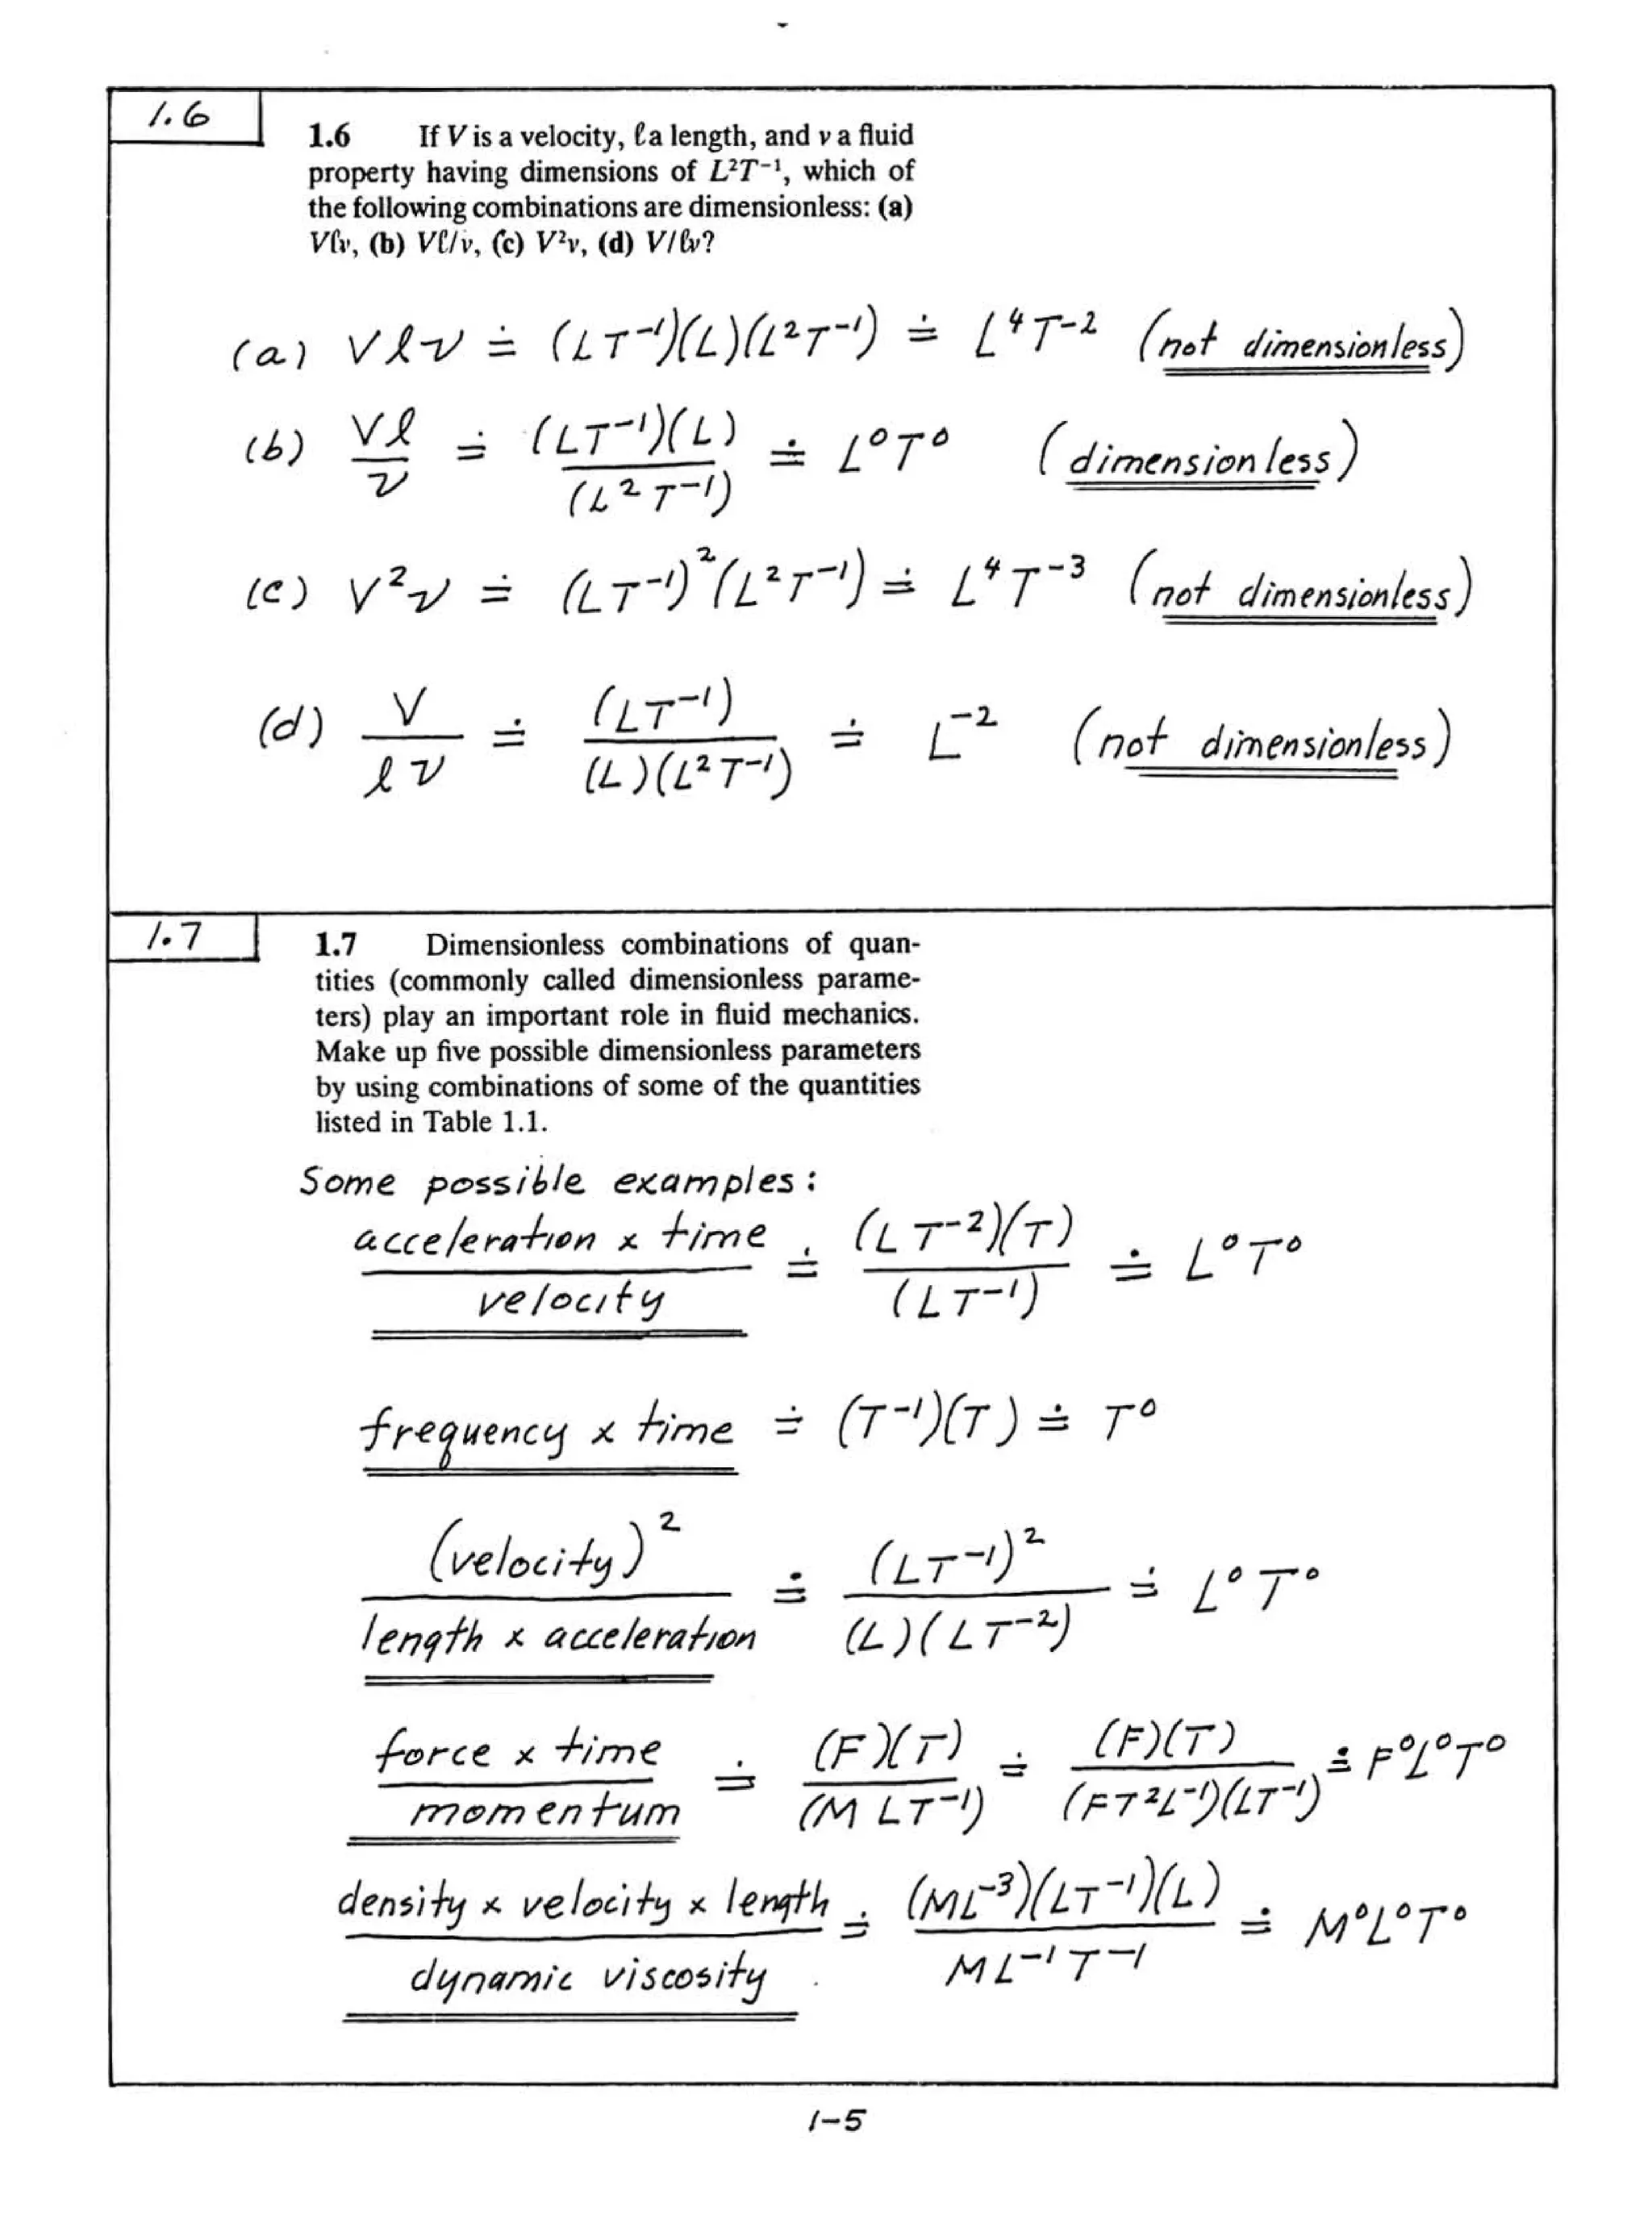 1.6
1.6 If V is a velocity, ℓ a length, and ν a fluid
property having dimensions of L²T⁻¹, which of
the following combinations are dimensionless: (a)
Vℓν, (b) Vℓ/ν, (c) V²ν, (d) V/ℓν?
(a) Vℓν ≐ (LT⁻¹)(L)(L²T⁻¹) ≐ L⁴T⁻² (not dimensionless)
(b) Vℓ/ν ≐ (LT⁻¹)(L)/(L²T⁻¹) ≐ L⁰T⁰ (dimensionless)
(c) V²ν ≐ (LT⁻¹)²(L²T⁻¹) ≐ L⁴T⁻³ (not dimensionless)
(d) V/ℓν ≐ (LT⁻¹)/(L)(L²T⁻¹) ≐ L⁻² (not dimensionless)
1.7
1.7 Dimensionless combinations of quan-
tities (commonly called dimensionless parame-
ters) play an important role in fluid mechanics.
Make up five possible dimensionless parameters
by using combinations of some of the quantities
listed in Table 1.1.
Some possible examples:
acceleration x time/velocity ≐ (LT⁻²)(T)/(LT⁻¹) ≐ L⁰T⁰
frequency x time ≐ (T⁻¹)(T) ≐ T⁰
(velocity)²/length x acceleration ≐ (LT⁻¹)²/(L)(LT⁻²) ≐ L⁰T⁰
force x time/momentum ≐ (F)(T)/(MLT⁻¹) ≐ (F)(T)/(FT²L⁻¹)(LT⁻¹) ≐ F⁰L⁰T⁰
density x velocity x length/dynamic viscosity ≐ (ML⁻³)(LT⁻¹)(L)/ML⁻¹T⁻¹ ≐ M⁰L⁰T⁰
1-5